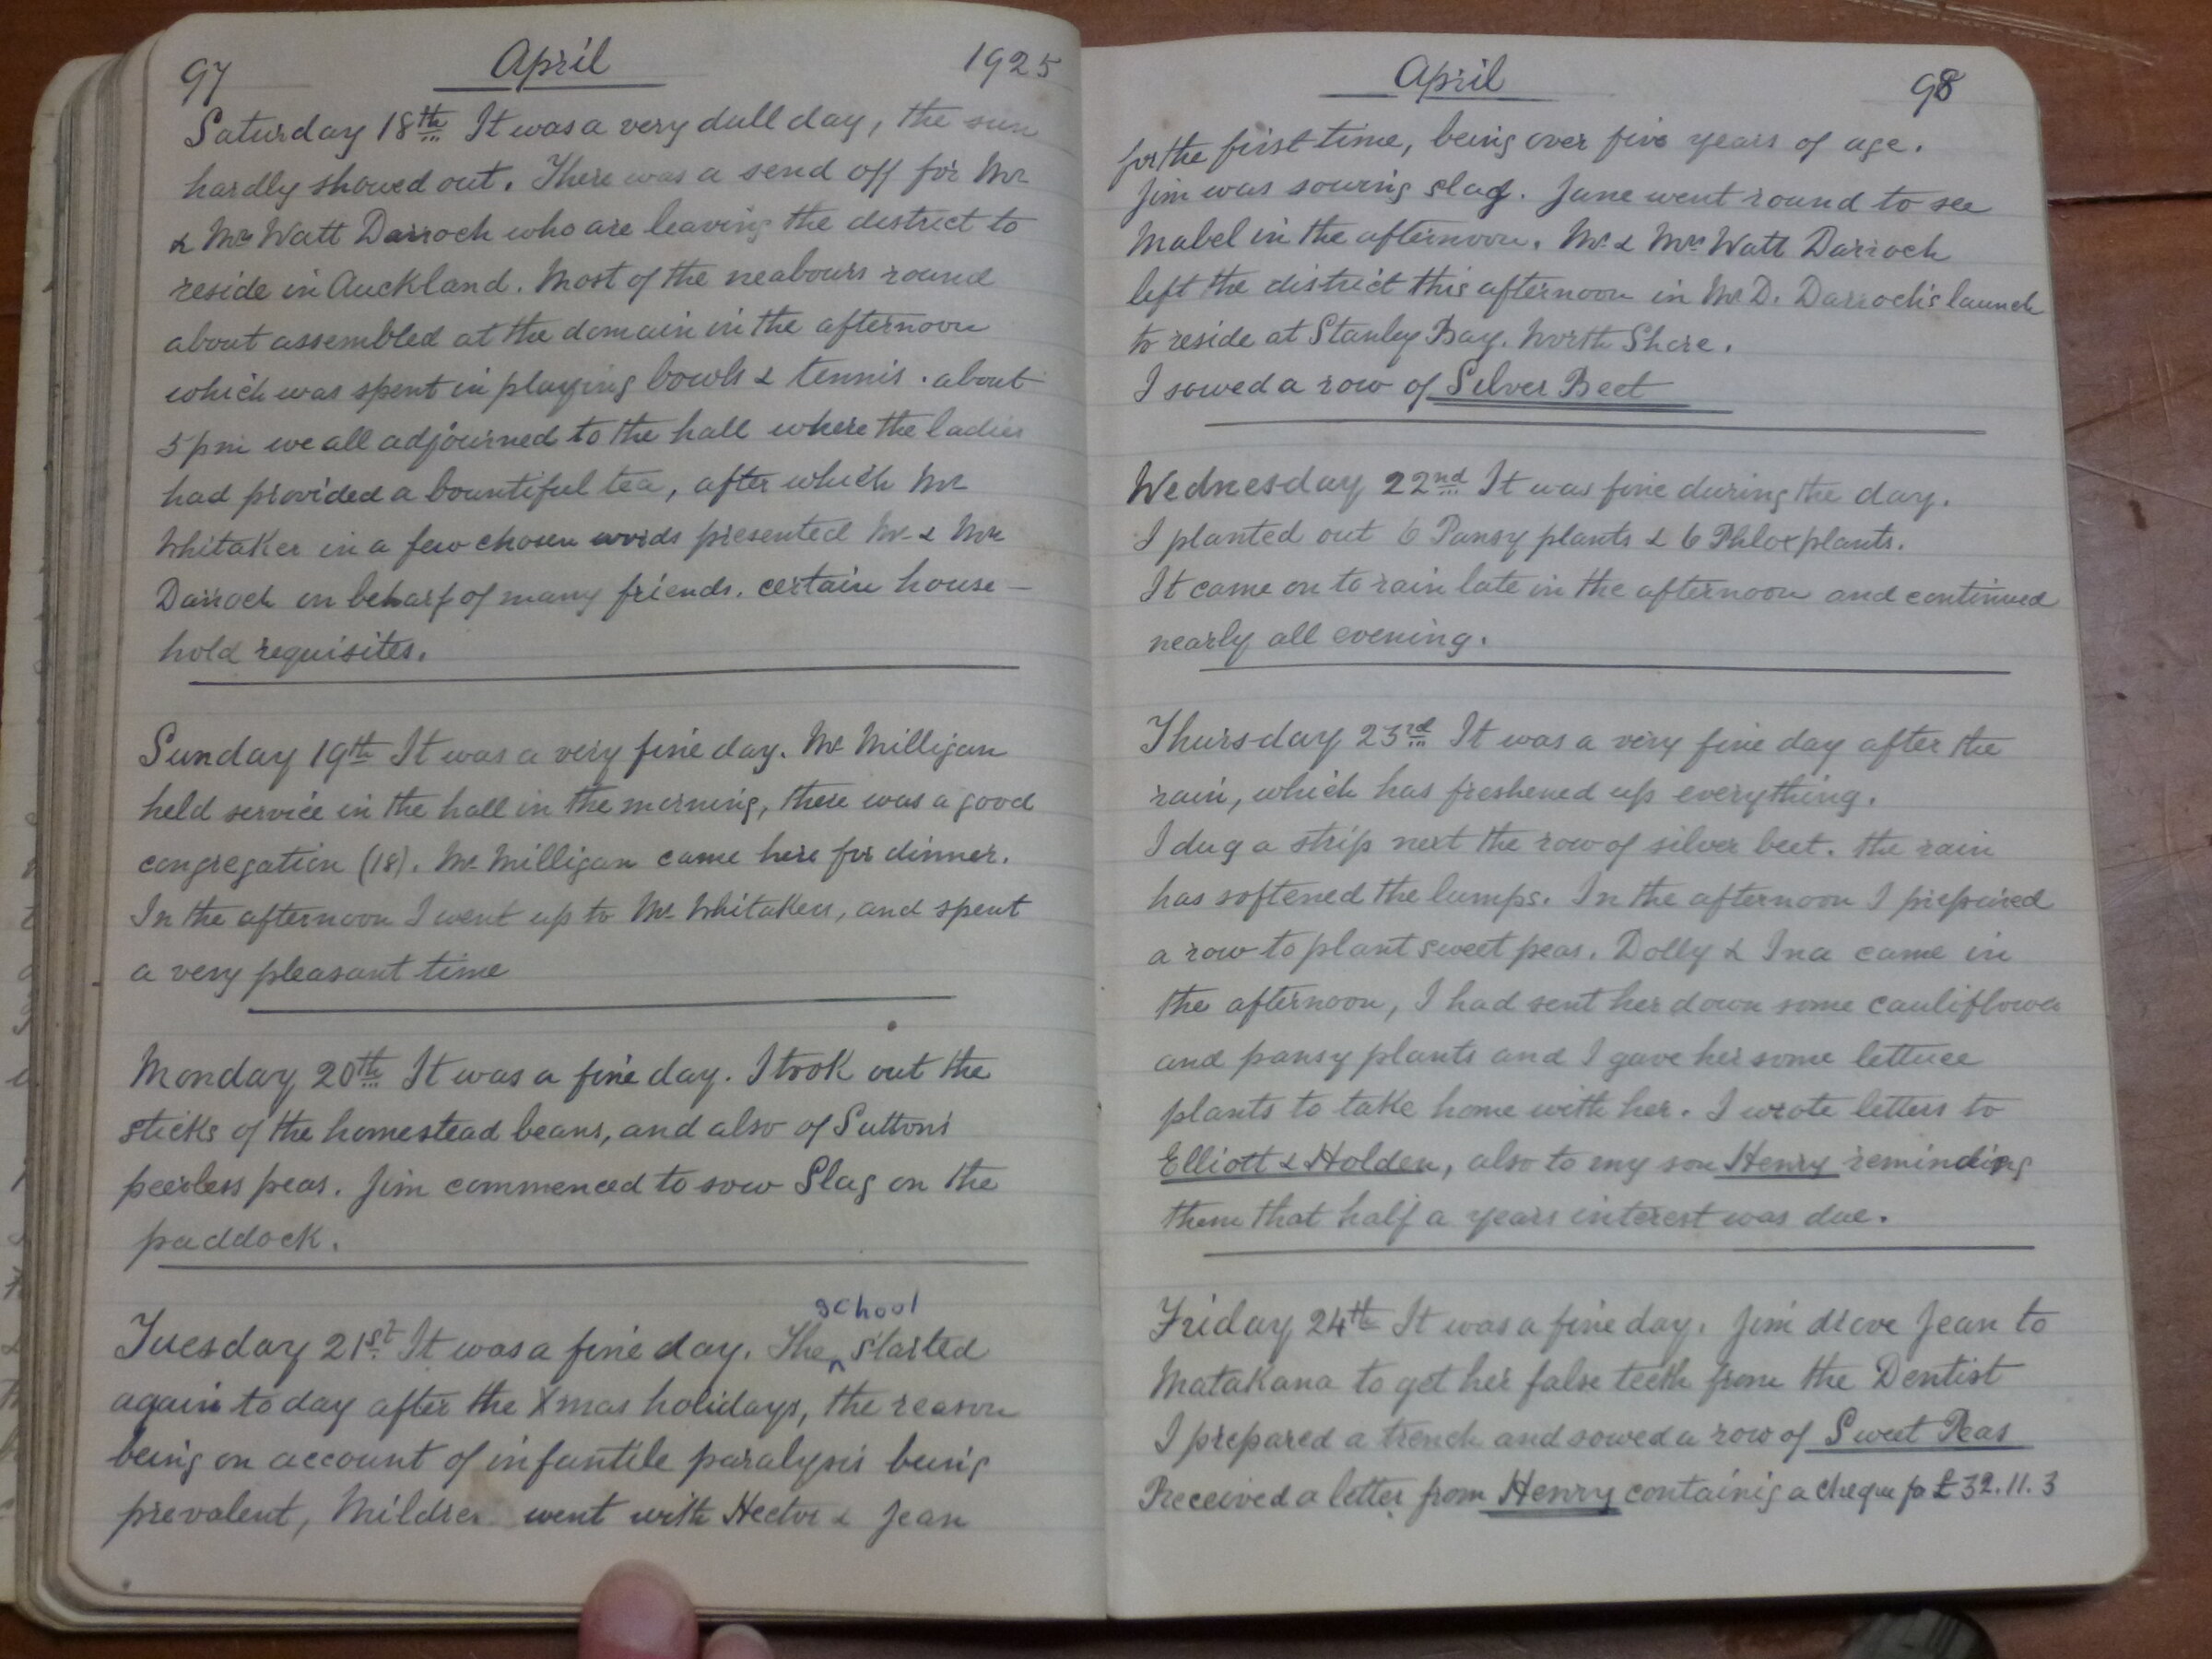 97 April 1925
Saturday 18th It was a very dull day, the sun
hardly showed out. There was a send off for Mr
& Mrs Watt Darroch who are leaving the district to
reside in Auckland. Most of the neabours round
about assembled at the domain in the afternoon
which was spent in playing bowls & tennis. about
5 pm we all adjourned to the hall where the ladies
had provided a bountiful tea, after which Mr
Whitaker in a few chosen words presented Mr & Mrs
Darroch on beharf of many friends. certain house-
hold requisites.
Sunday 19th It was a very fine day. Mr Milligan
held service in the hall in the morning, there was a good
congregation (18). Mr Milligan came here for dinner.
In the afternoon I went up to Mr Whitakers, and spent
a very pleasant time
Monday 20th It was a fine day. I took out the
sticks of the homestead beans, and also of Suttons
peerless peas. Jim commenced to sow Slag on the
paddock.
school
Tuesday 21st It was a fine day. The ^ started
again to day after the Xmas holidays, the reason
being on account of infantile paralysis being
prevalent, went with Hector & Jean
April 98
for the first time, being over five years of age.
Jim was sowing slag. Jane went round to see
Mabel in the afternoon. Mr & Mrs Watt Darroch
left the district this afternoon in Mr D. Darroch's launch
to reside at Stanley Bay. North Shore.
I sowed a row of Silver Beet
Wednesday 22nd It was fine during the day.
I planted out 6 Pansy plants & 6 Phlox plants.
It came on to rain late in the afternoon and continued
nearly all evening.
Thursday 23rd It was a very fine day after the
rain, which has freshened up everything.
I dug a strip next the row of silver beet. the rain
has softened the lumps. In the afternoon I prepaired
a row to plant sweet peas. Dolly & Ina came in
the afternoon, I had sent her down some cauliflower
and pansy plants and I gave her some lettuce
plants to take home with her. I wrote letters to
Elliott & Holden, also to my son Henry reminding
them that half a years interest was due.
Friday 24th It was a fine day. Jim drove Jean to
Matakana to get her false teeth from the Dentist
I prepared a trench and sowed a row of Sweet Peas
Received a letter from Henry containig a cheque fo £32.11.3